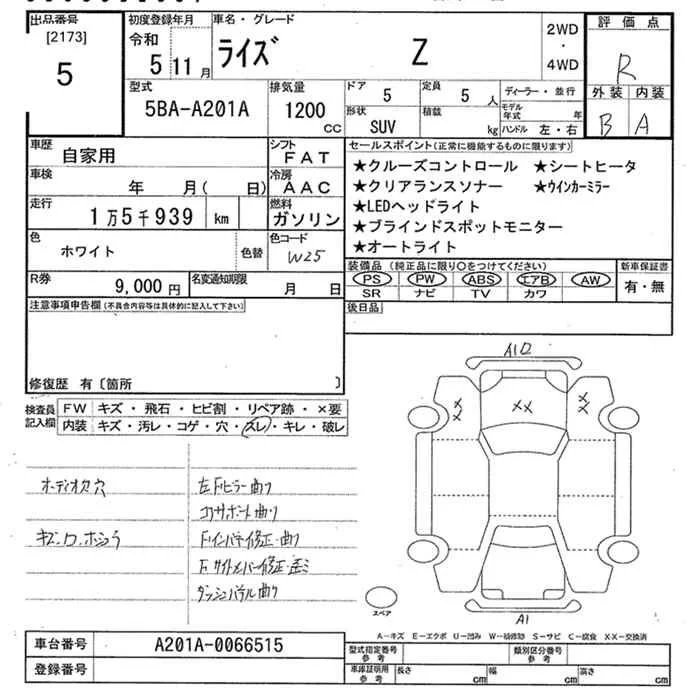 出品番号
[2173]
5
初度登録年月
令和
5 11月
車名・グレード
ライズ Z
2WD
・
4WD
評価点
R
外装 内装
B A
型式
5BA-A201A
排気量
1200 CC
ドア 5
定員 5 人
形状 SUV
積載 kg
ディーラー・並行
モデル年式 年
ハンドル 左・右
車歴 自家用
シフト FAT
車検 年 月( 日)
冷房 AAC
走行 1万5千939 km
燃料 ガソリン
色 ホワイト 色替
色コード W25
R券 9,000円
名変通知期限 月 日
セールスポイント(正常に機能するものに限ります)
★クルーズコントロール ★シートヒータ
★クリアランスソナー ★ウインカーミラー
★LEDヘッドライト
★ブラインドスポットモニター
★オートライト
装備品(純正品に限り○をつけてください)
PS PW ABS エアB AW
SR ナビ TV カワ
新車保証書
有・無
後日品
注意事項申告欄(不具合内容等は具体的に記入して下さい)
修復歴 有〔箇所 〕
検査員記入欄
FW キズ・飛石・ヒビ割・リペア跡・×要
内装 キズ・汚レ・コゲ・穴・スレ・キレ・破レ
オーディオ穴
左Fピラー曲り
コアサポート曲り
Fインパネ修正・曲り
ダッシュパネル曲り
A10
××
××
××
A1
スペア
A-キズ E-エクボ U-凹み W-補修跡 S-サビ C-腐食 XX-交換済
車台番号 A201A-0066515
登録番号
型式指定番号 参考
類別区分番号 参考
車庫証明用 参考
長さ cm
幅 cm
高さ cm